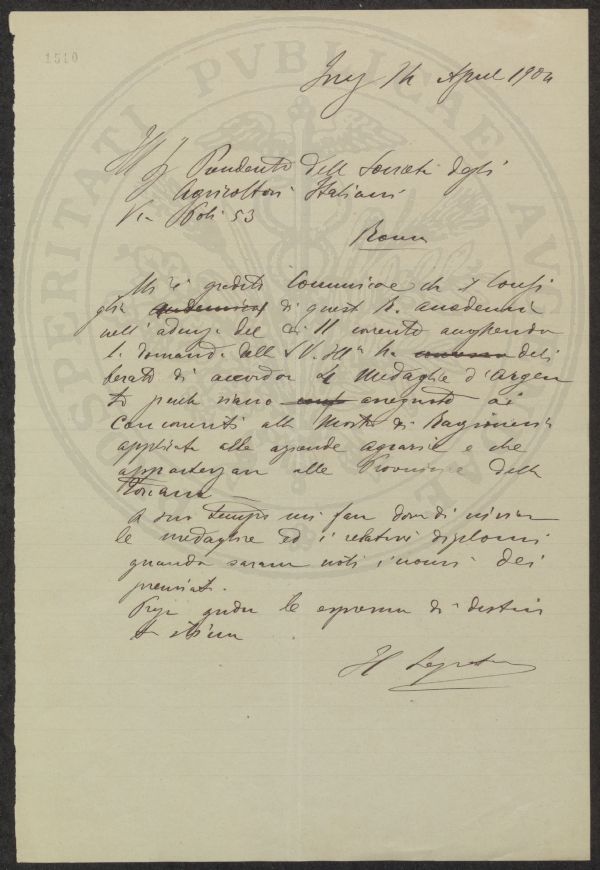 1510
14 April 1904
Ill Presidente dell Società degli
Agricoltori Italiani
Via Poli 53
Roma
Mi è gradito Comunicare che il Consi
glio di quest R. Accademia
nell' adunza del dì 11 corrente
la domanda della S.V. Ill ha deli
berato di accordar Medaglie d'Argen
to perchè siano assegnate ai
Concorrenti alla Mostra di Ragioneria
applicata alle aziende agrarie e che
appartengan alle Provincie della
Toscana
A suo tempo mi farò dovere di inviar
le medaglie ed i relativi diplomi
quando saran noti i nomi dei
premiati.
le espression di distin
ta stima
Il Segretar
PVBLICAE